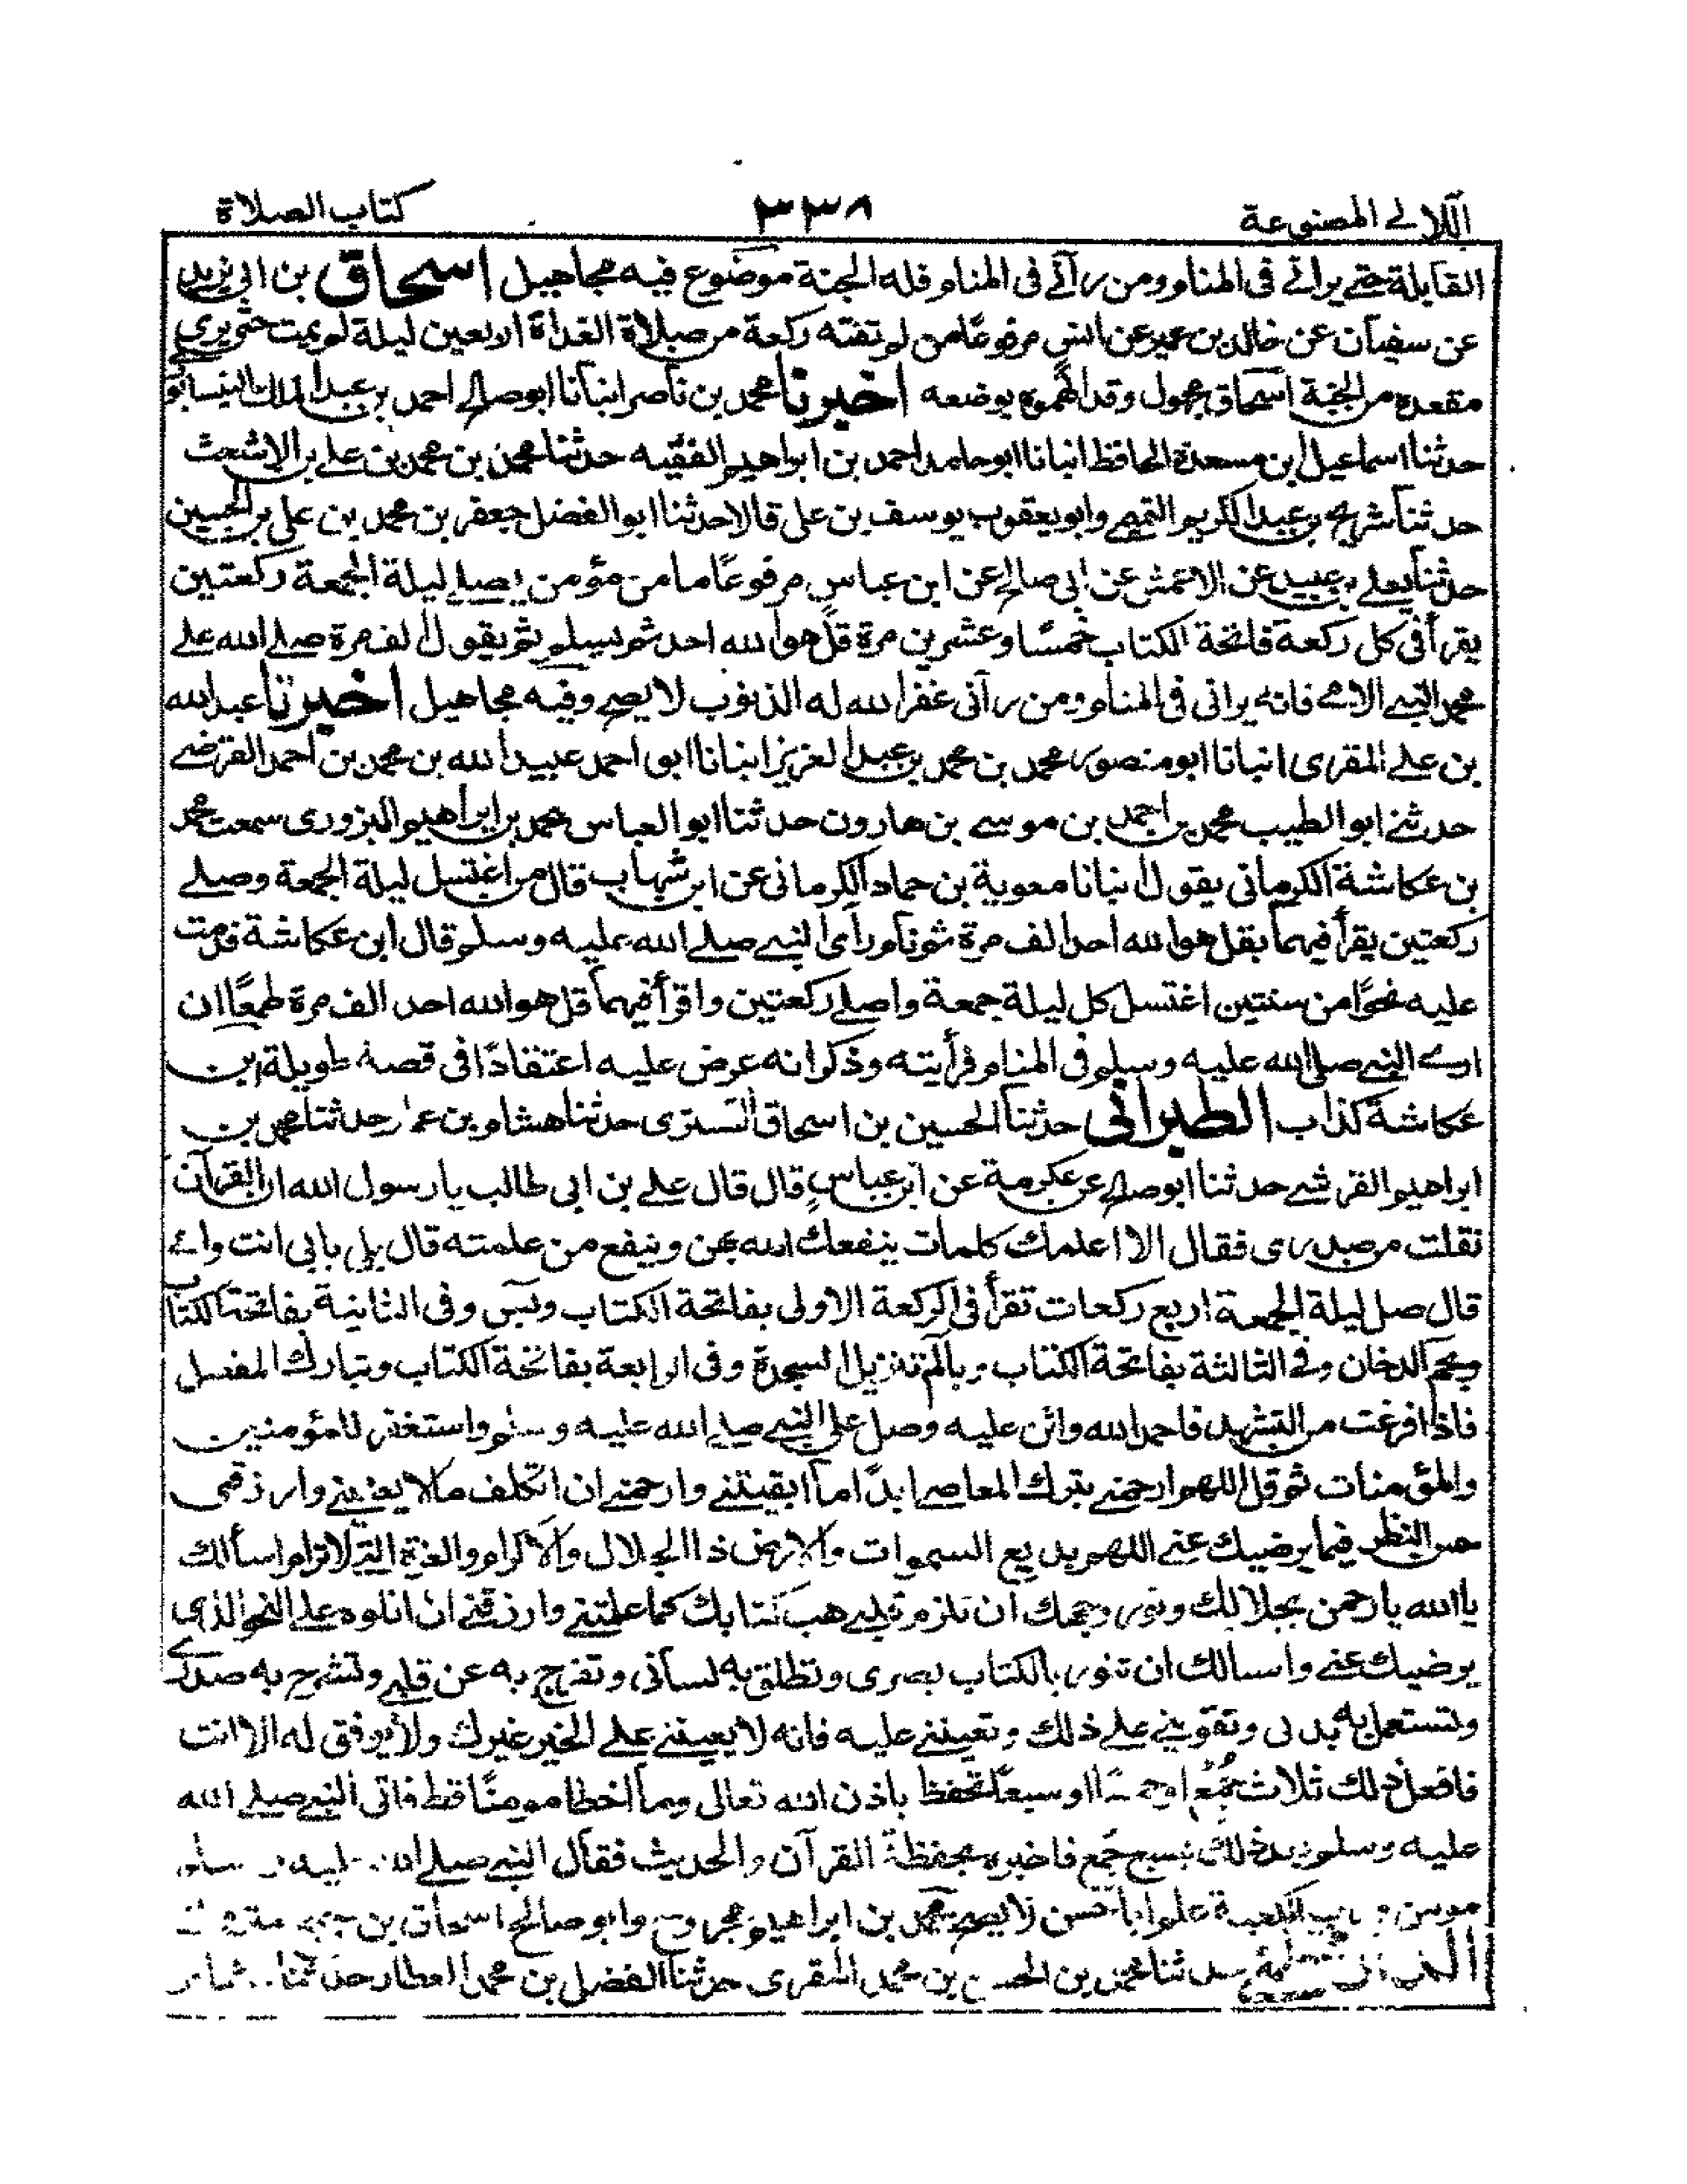 اللآلے المصنوعة ٣٣٨ كتاب الصلاة
القابلة حتے يرانے فى المنام ومن رآنے فى المنام فله الجنة موضوع فيه مجاهيل اسحاق بن ابى يزيد
عن سفيان عن خالد بن عمير عن انس مرفوعًا من لم تفته ركعة من صلاة الغداة اربعين ليلة لم يمت حتى يرى
مقعده من الجنة اسحاق مجهول وقد اتهموه بوضعه اخبرنا محمد بن ناصر انبأنا ابو صالح احمد بن عبد الملك النيسابورى
حدثنا اسماعيل ابن مسعدة الحافظ انبانا ابو حامد احمد بن ابراهيم الفقيه حدثنا محمد بن محمد بن على بن الاشعث
حدثنا شريح بن عبد الكريم التميمے وابو يعقوب يوسف بن على قالا حدثنا ابو الفضل جعفر بن محمد بن على بن الحسين
حدثنا يعلے بن عبيد عن الاعمش عن ابى صالح عن ابن عباس مرفوعًا ما من مؤمن يصلے ليلة الجمعة ركعتين
يقرأ فى كل ركعة فاتحة الكتاب خمسًا وعشرين مرة قل هو الله احد ثم يسلم ثم يقول الف مرة صلے الله علے
محمد النبے الامے فانه يرانى فى المنام ومن رآنى غفر الله له الذنوب لا يصح وفيه مجاهيل اخبرنا عبد الله
بن علے المقرى انبانا ابو منصور محمد بن محمد بن عبد العزيز انبانا ابو احمد عبيد الله بن محمد بن احمد الفرضے
حدثنے ابو الطيب محمد بن احمد بن موسے بن هارون حدثنا ابو العباس محمد بن ابراهيم البزورى سمعت محمد
بن عكاشة الكرمانى يقول انبانا معوية بن حماد الكرمانى عن ابن شهاب قال من اغتسل ليلة الجمعة وصلے
ركعتين يقرأ فيهما بقل هو الله احد الف مرة ثم نام رأى النبے صلے الله عليه وسلم قال ابن عكاشة قدمت
عليه نحوًا من سنتين اغتسل كل ليلة جمعة واصلے ركعتين واقرأ فيهما قل هو الله احد الف مرة طمعًا ان
ارے النبے صلى الله عليه وسلم فى المنام فرأيته وذكر انه عرض عليه اعتقادًا فى قصة طويلة ابن
عكاشة كذاب الطبرانى حدثنا الحسين بن اسحاق التسترى حدثنا هشام بن عمار حدثنا محمد بن
ابراهيم القرشے حدثنا ابو صالح عن عكرمة عن ابن عباس قال قال علے بن ابى طالب يا رسول الله ان القرآن
تفلت من صدرى فقال الا اعلمك كلمات ينفعك الله بهن وينفع من علمته قال بلے بابى انت وامے
قال صل ليلة الجمعة اربع ركعات تقرأ فى الركعة الاولى بفاتحة الكتاب ويٓس وفى الثانية بفاتحة الكتاب
وبحٓم الدخان وفى الثالثة بفاتحة الكتاب وبالٓمٓ تنزيل السجدة وفى الرابعة بفاتحة الكتاب وتبارك المفصل
فاذا فرغت من التشهد فاحمد الله واثن عليه وصل على النبے صلے الله عليه وسلم واستغفر للمؤمنين
والمؤمنات ثم قل اللهم ارحمنے بترك المعاصے ابدًا ما ابقيتنے وارحمنے ان اتكلف ما لا يعنينے وارزقنى
حسن النظر فيما يرضيك عنے اللهم بديع السموات والارض ذا الجلال والاكرام والعزة التے لا ترام اسألك
يا الله يا رحمن بجلالك ونور وجهك ان تلزم قلبے حب كتابك كما علمتنے وارزقنے ان اتلوه على النحو الذى
يرضيك عنے واسالك ان تنور بالكتاب بصرى وتطلق به لسانى وتفرج به عن قلبے وتشرح به صدرے
وتستعمل به بدنى وتقوينے علے ذلك وتعيننے عليه فانه لا يعيننے علے الخير غيرك ولا يوفق له الا انت
فافعل ذلك ثلاث جُمُع او خمسًا او سبعًا تحفظ باذن الله تعالى وما اخطا مومنًا قط فاتى النبے صلے الله
عليه وسلم بعد ذلك بسبع جُمَع فاخبره بحفظة القرآن والحديث فقال النبے صلے الله عليه وسلم
مومن ورب الكعبة علم ابا حسن لا يصح محمد بن ابراهيم مجروح وابو صالح اسحاق بن نجيح متروك
حدثنا محمد بن الحسن بن محمد المقرى حدثنا الفضل بن محمد العطار حدثنا هشام